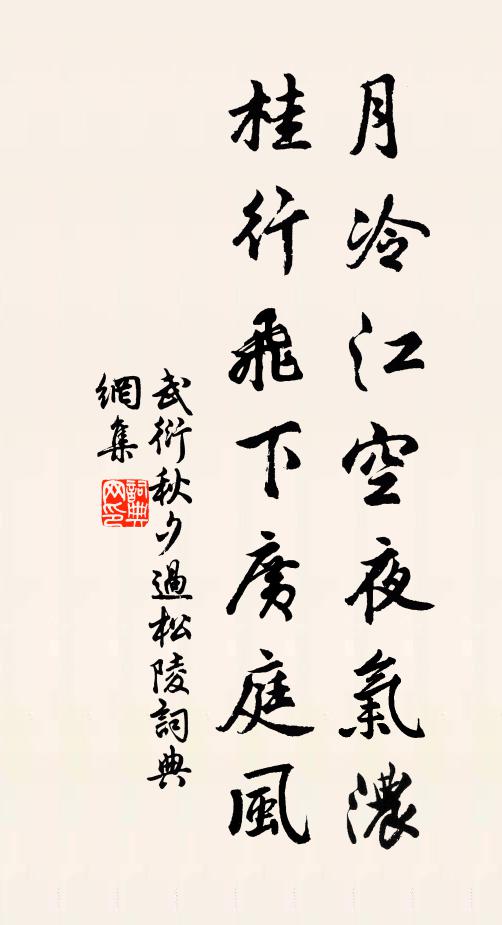 月冷江空夜氣濃
桂行飛下廣庭風
武衍秋夕過松陵詞典
網集
詞典
網印